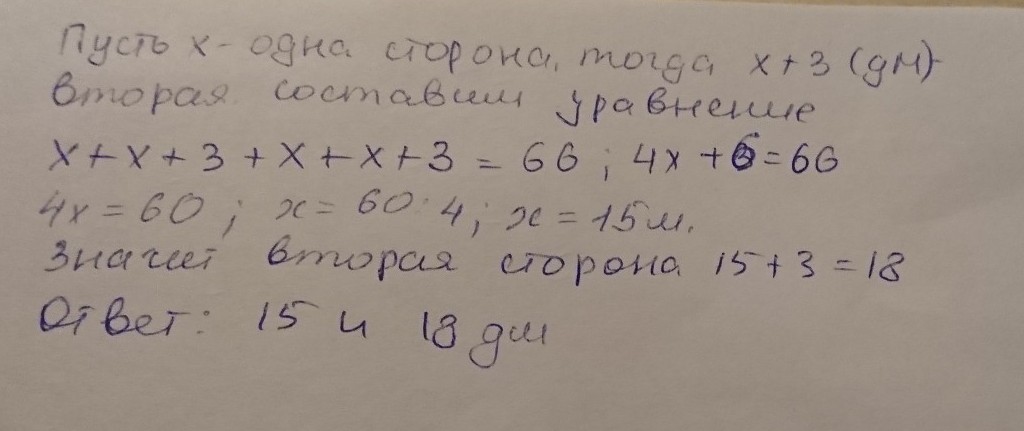 Пусть x - одна сторона, тогда x + 3 (дм)-
вторая. составим уравнение
x + x + 3 + x + x + 3 = 66 ; 4x + 6 = 66
4x = 60 ; x = 60 : 4 ; x = 15 м.
Значит вторая сторона 15 + 3 = 18
Ответ: 15 и 18 дм